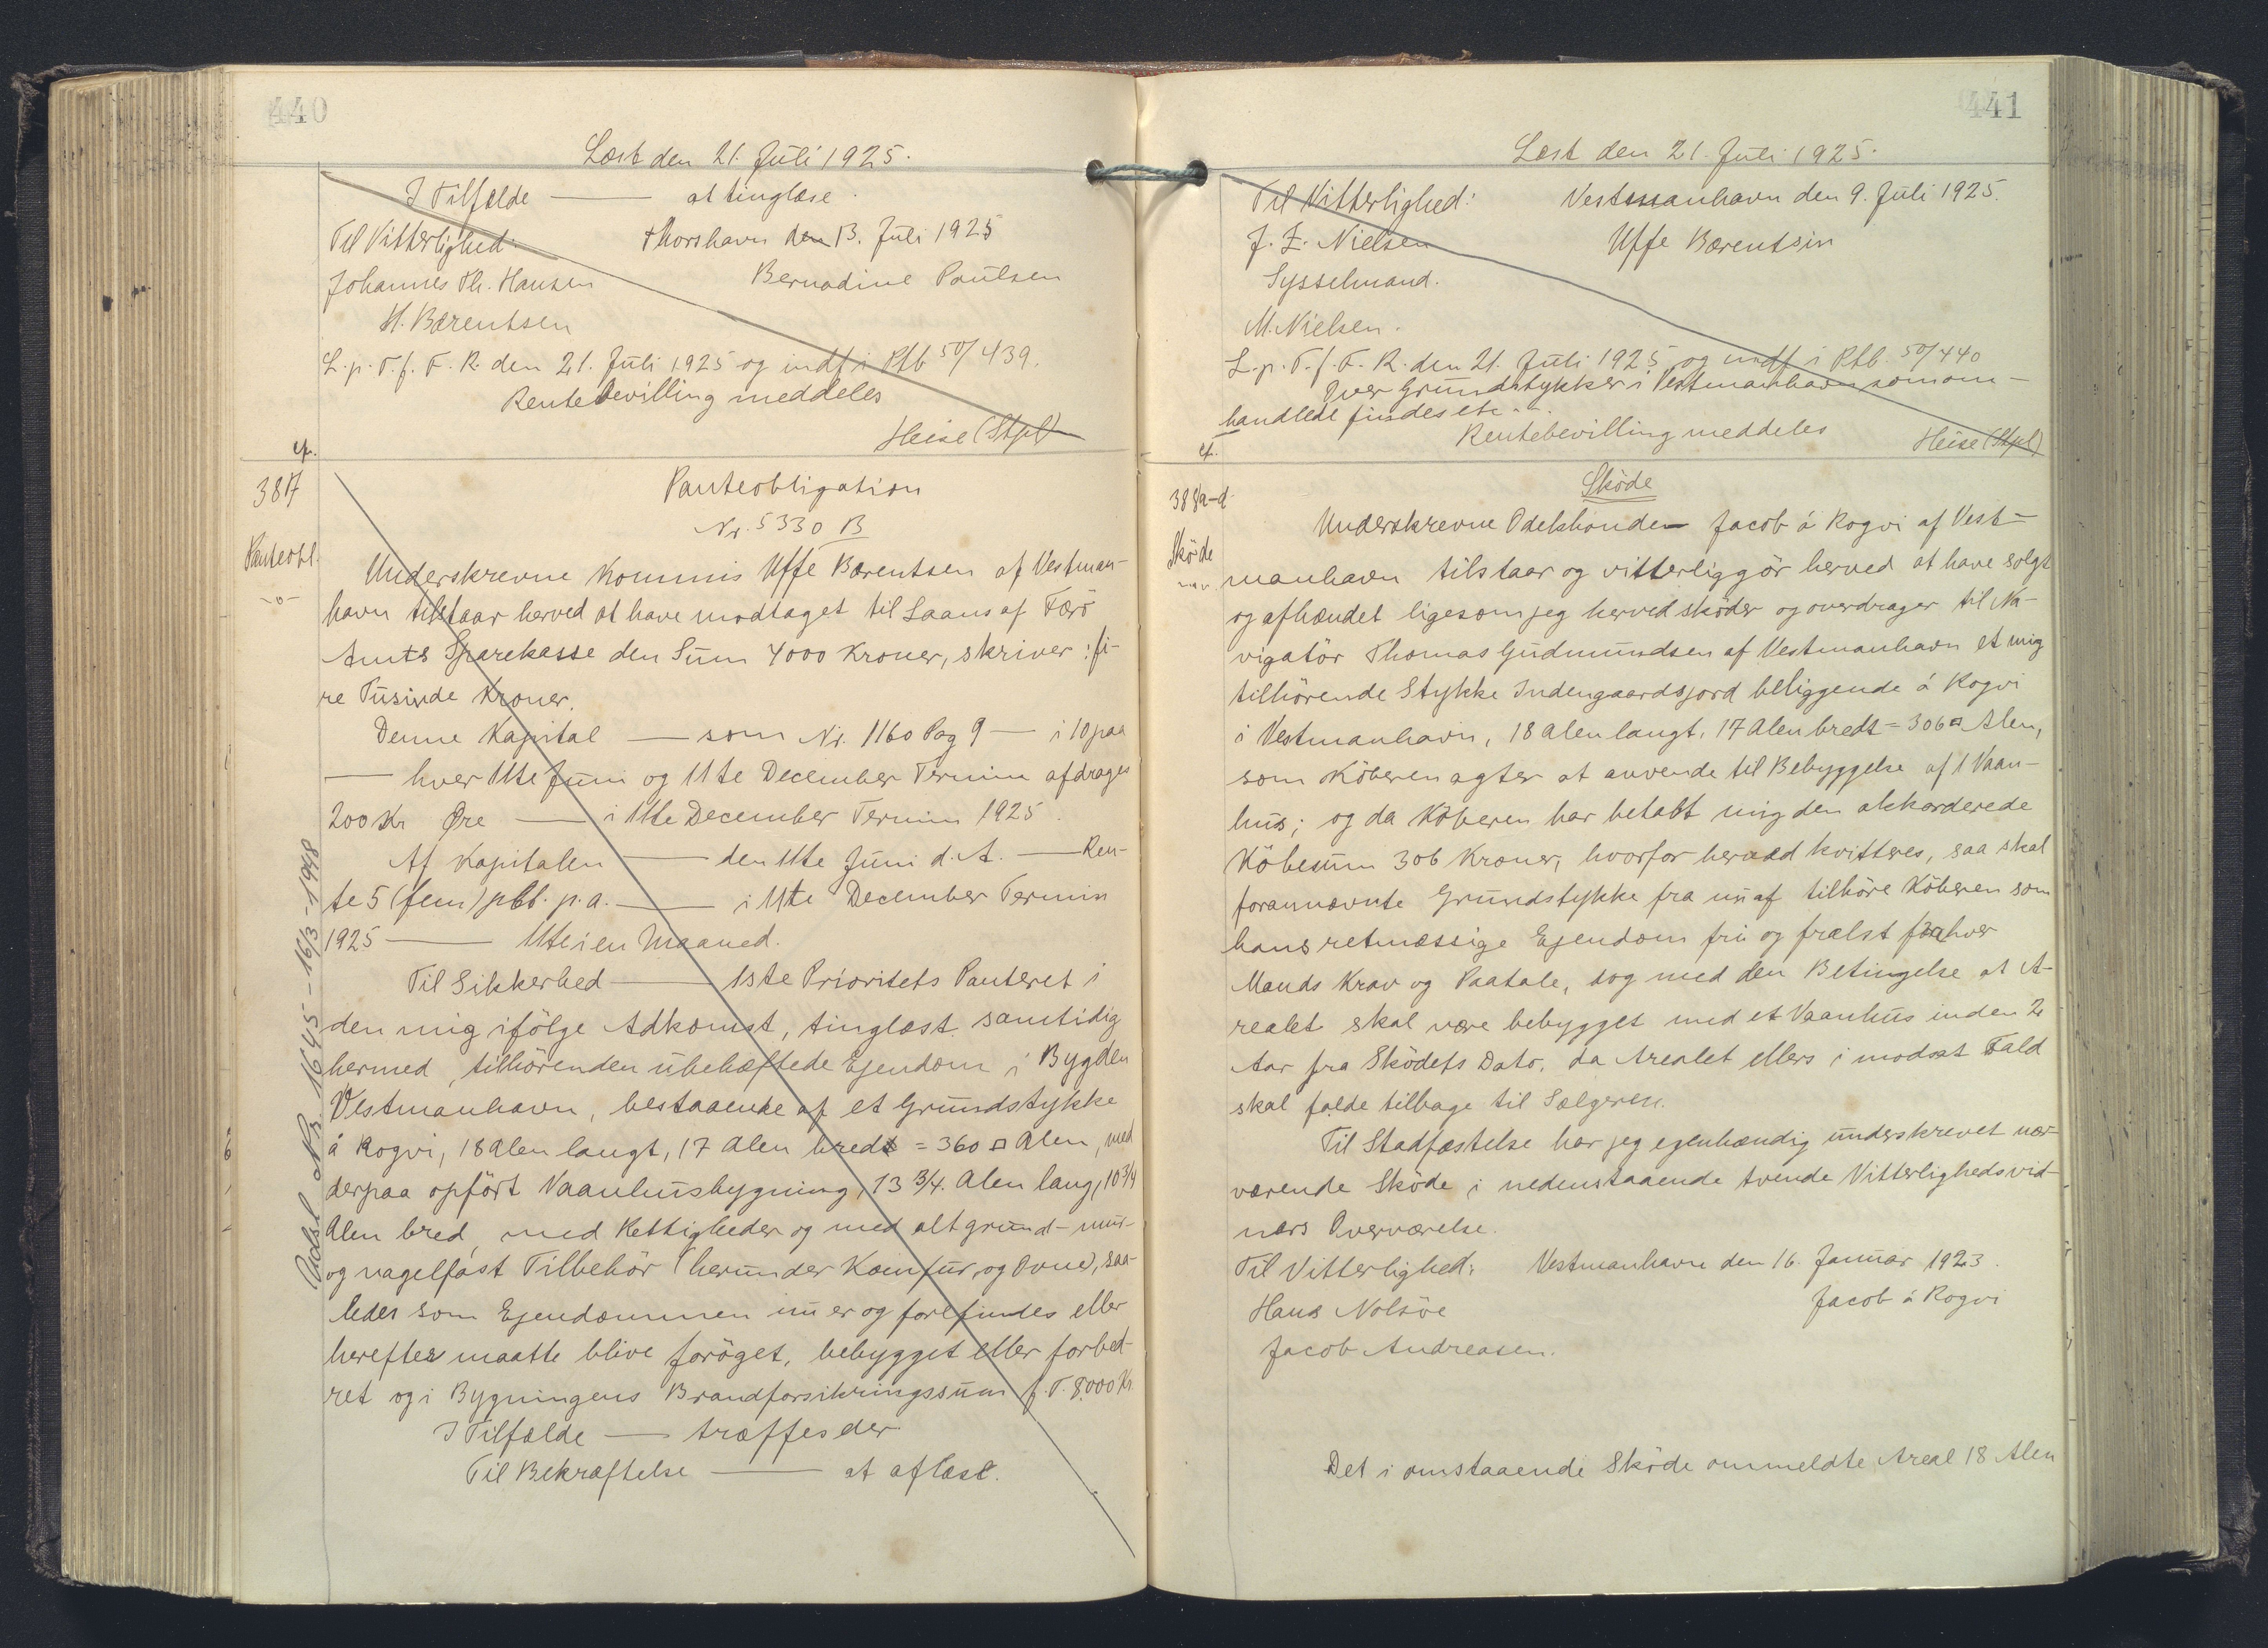 440
Læst den 21. Juli 1925.
I Tilfælde — at tinglæse.
Til Vitterlighed: Thorshavn den 13. Juli 1925
Johannes Th. Hansen Bernadine Poulsen
H. Bærentsen
L. p. T. f. F. R. den 21. Juli 1925 og indf i Ptb 50/439.
Rentebevilling meddeles
Heise (Stpl)
cf.
387
Panteobl.
Panteobligation
Nr. 5330 B
Underskrevne Kommis Uffe Bærentsen af Vestman-
havn tilstaar herved at have modtaget til Laans af Færö
Amts Sparekasse den Sum 4000 Kroner, skriver: fi-
re Tusinde Kroner.
Denne Kapital — som Nr. 1160 Pag 9 — i 10 paa
— hver 11te Juni og 11te December Termin afdrages
200 Kr Øre — i 11te December Termin 1925.
Af Kapitalen — den 11te Juni d. A. — Ren-
te 5 (fem) pCt. p. a. — i 11te December Termin
1925 — 11te i en Maaned.
Til Sikkerhed — 1ste Prioritets Panteret i
den mig ifölge Adkomst, tinglæst samtidig
hermed, tilhörenden ubehæftede Ejendom i Bygden
Vestmanhavn, bestaaende af et Grundstykke
á Rogvi, 18 Alen langt, 17 Alen bredt = 360 □ Alen, med
derpaa opfört Vaanhusbygning, 13 3/4. Alen lang, 10 3/4
Alen bred, med Rettigheder og med alt grund- mur-
og nagelfast Tilbehör (herunder Komfur og Ovne), saa-
ledes som Ejendommen nu er og forefindes eller
herefter maatte blive foröget, bebygget eller forbed-
ret og i Bygningens Brandforsikringssum f. T. 8000 Kr.
I Tilfælde — træffes der
Til Bekræftelse — at aflæse.
Udsl. Nr. 1645 - 16/3 - 1948
441
Læst den 21. Juli 1925.
Til Vitterlighed: Vestmanhavn den 9. Juli 1925.
J. F. Nielsen Uffe Bærentsin
Sysselmand.
M. Nielsen.
L. p. T. f. F. R. den 21. Juli 1925 og indf i Ptb. 50/440
Over Grundstykker i Vestmanhavn som om-
handlede findes etc...
Rentebevilling meddeles Heise (Stpl)
cf.
388a-d.
Sköde
Sköde
Underskrevne Odelsbonde Jacob á Rogvi af Vest-
manhavn tilstaar og vitterliggör herved at have solgt
og afhændet ligesom jeg herved sköder og overdrager til Na-
vigatör Thomas Gudmundsen af Vestmanhavn et mig
tilhörende Stykke Indengaardsjord beliggende á Rogvi
i Vestmanhavn, 18 Alen langt, 17 Alen bredt = 306 □ Alen,
som Köberen agter at anvende til Bebyggelse af 1 Vaan-
hus; og da Köberen har betalt mig den akkorderede
Köbesum 306 Kroner, hvorfor herved kvitteres, saa skal
forannævnte Grundstykke fra nu af tilhöre Köberen som
hans retmæssige Ejendom fri og frælst for hver
Mands Krav og Paatale, dog med den Betingelse at A-
realet skal være bebygget med et Vaanhus inden 2
Aar fra Sködets Dato, da Arealet ellers i modsat Fald
skal falde tilbage til Sælgeren.
Til Stadfæstelse har jeg egenhændig underskrevet nær-
værende Sköde i nedenstaaende tvende Vitterlighedsvid-
ners Overværelse.
Til Vitterlighed: Vestmanhavn den 16. Januar 1923.
Hans Nolsöe Jacob á Rogvi
Jacob Andreasen.
Det i omstaaende Sköde ommeldte Areal 18 Alen